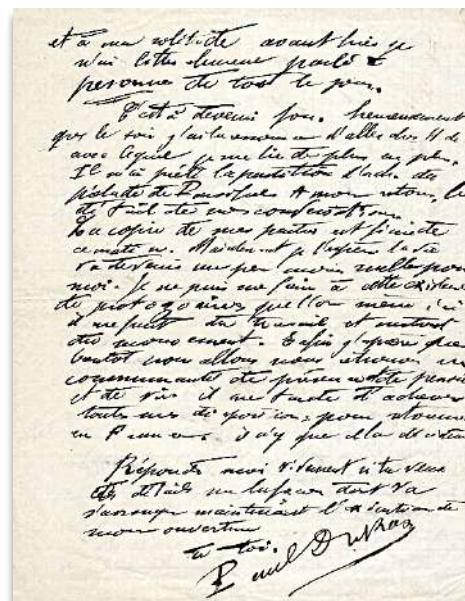 et à ma solitude avant hier je
n'ai littéralement parlé à
personne de tout le jour.
C'est à devenir fou. heureusement
que le soir j'ai la ressource d'aller chez H de
avec lequel je me lie de plus en plus.
Il m'a prêté la partition d'orch. du
prélude de
de nos conversations.
La copie de mes parties est finie de
ce matin. Maintenant je l'espère la vie
va devenir un peu moins nulle pour
moi. je ne puis me faire à cette existence
de protozoaires que l'on mène ici
il me faut du travail et surtout
du mouvement. Enfin j'espère que
bientôt nous allons nous retrouver en
communauté de présence et de pensée
et de vie il me tarde d'achever
toutes mes pour retourner
en France. il n'y que là
Réponds moi vivement si tu veux
des détails sur la façon dont va
s'arranger maintenant l'exécution de
mon ouverture
à toi.
Paul Dukas